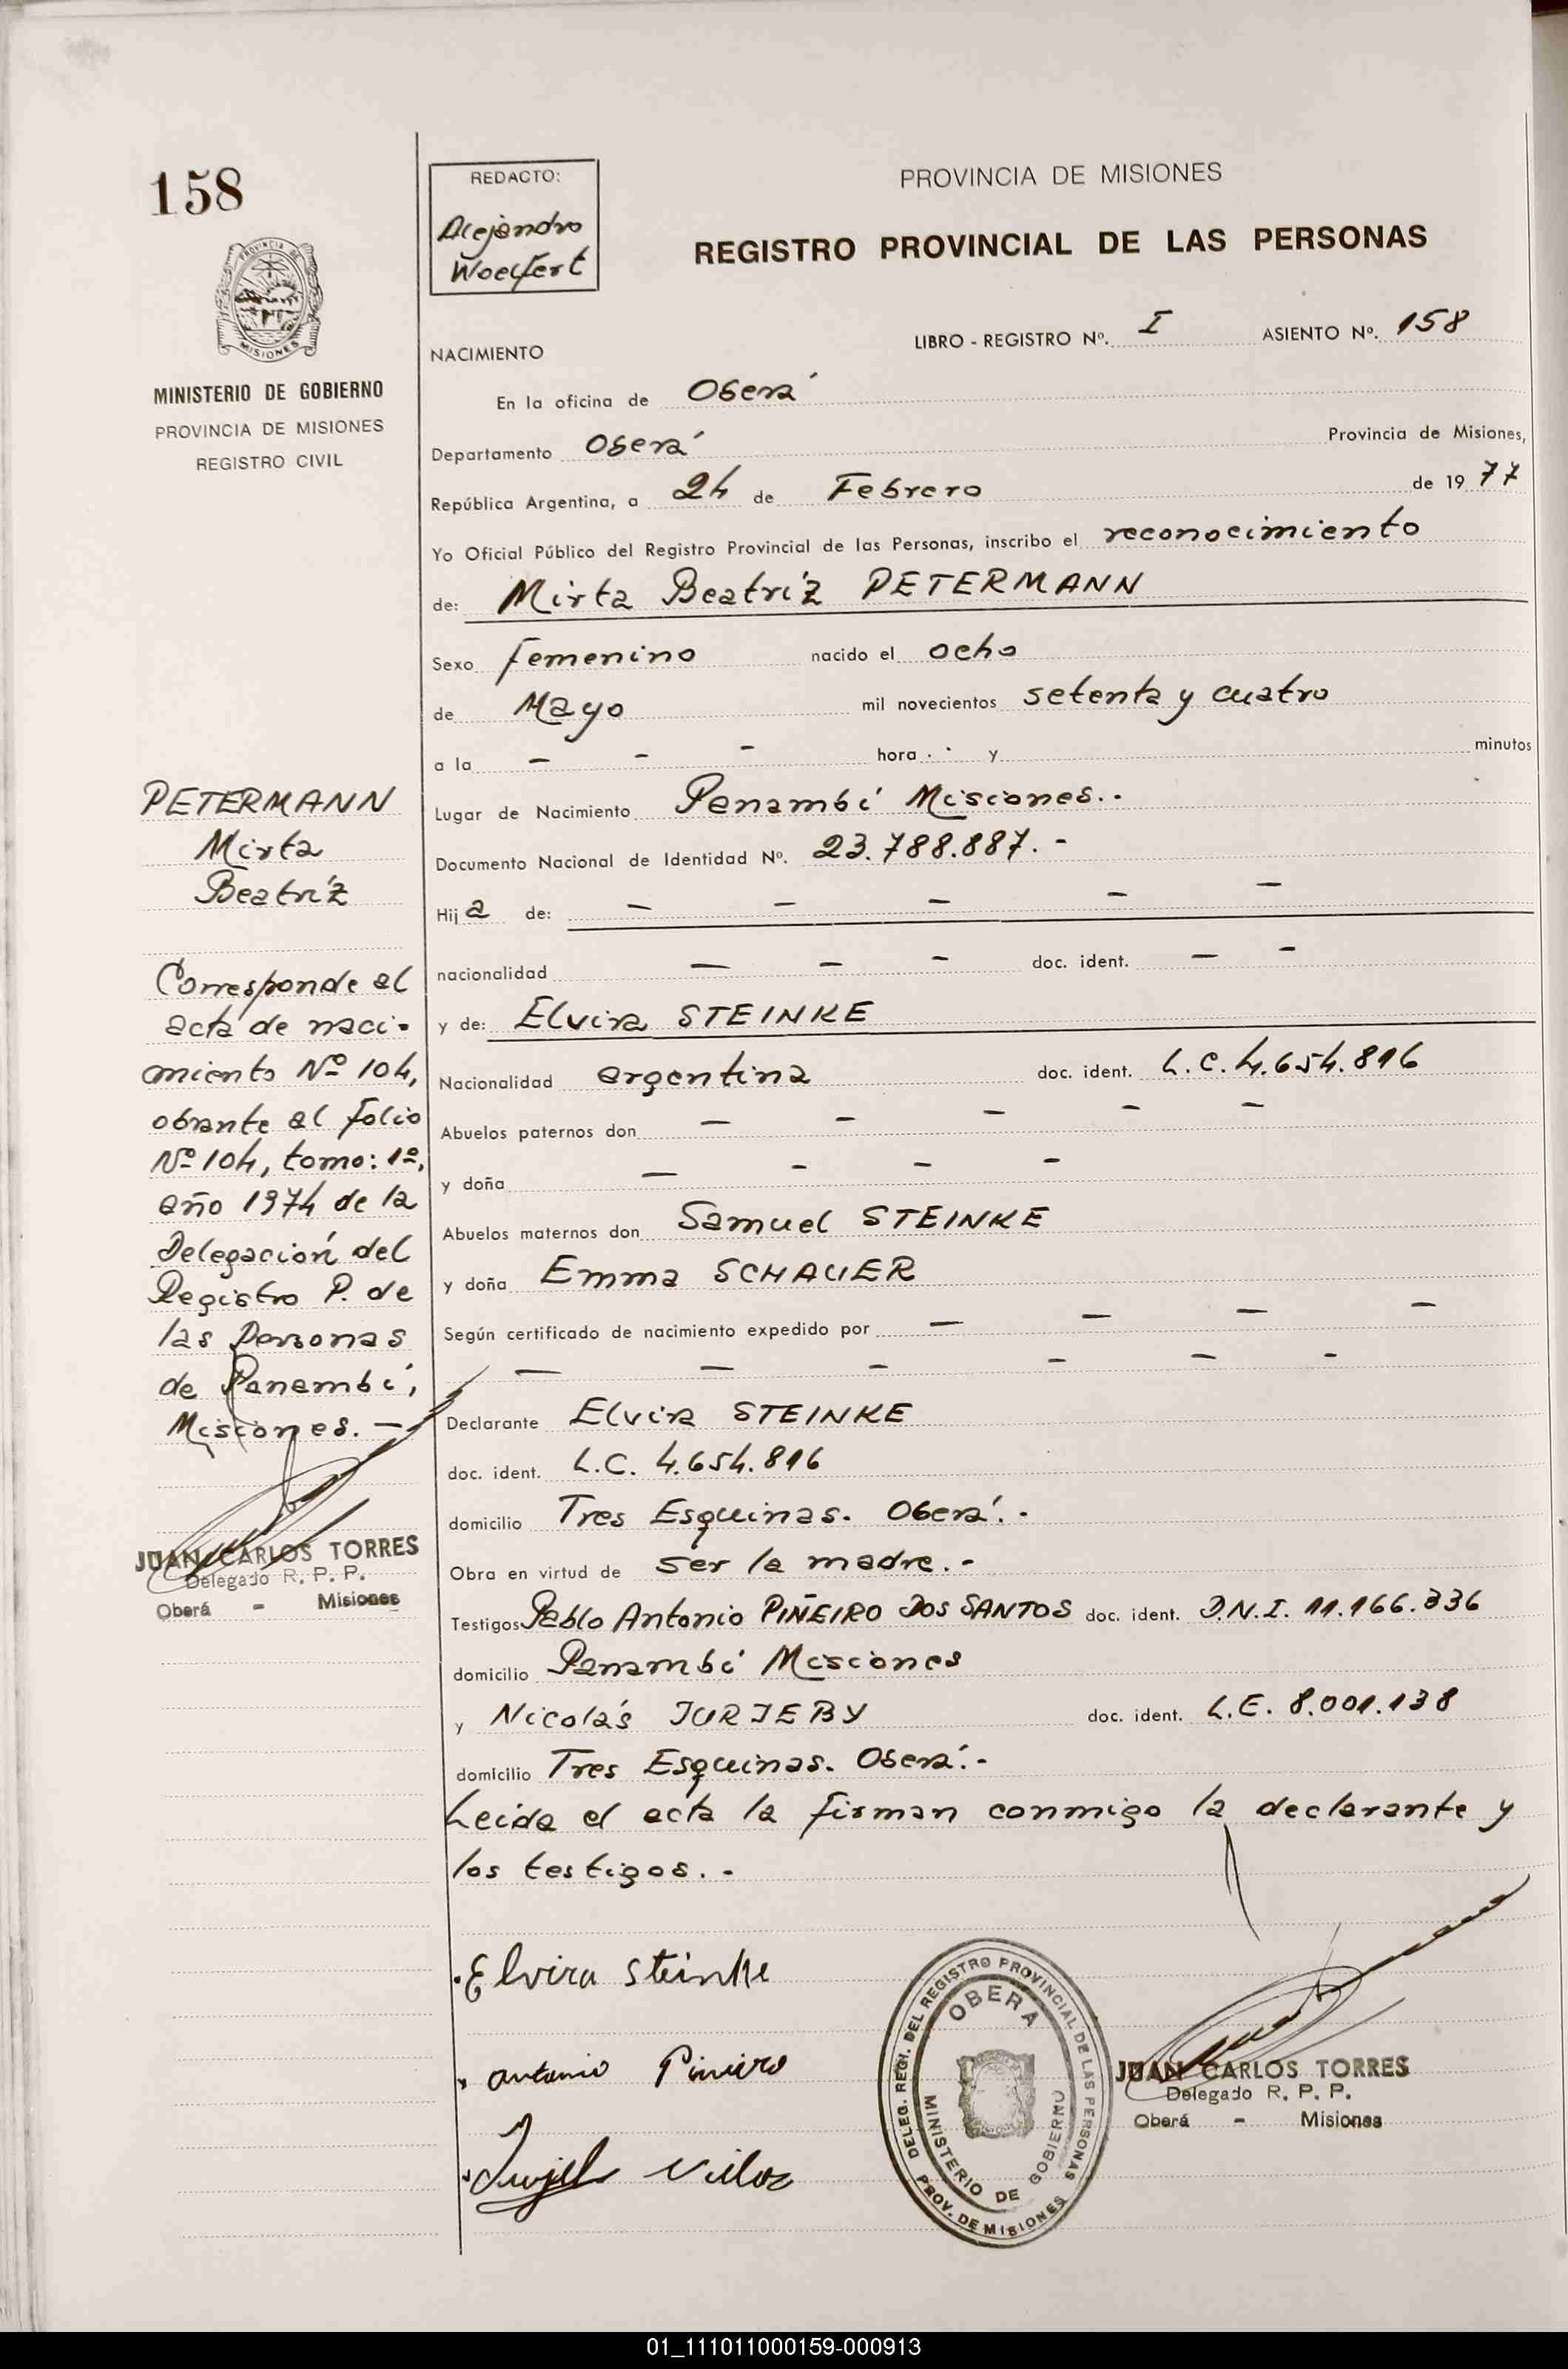 158
PROVINCIA DE
MISIONES
MINISTERIO DE GOBIERNO
PROVINCIA DE MISIONES
REGISTRO CIVIL
PETERMANN
Mirta
Beatríz
Corresponde al
acta de naci-
miento Nº 104,
obrante al folio
Nº 104, tomo: 1º,
año 1974 de la
Delegación del
Registro P. de
las Personas
de Panambí,
Misiones. —
JUAN CARLOS TORRES
Delegado R. P. P.
Oberá - Misiones
REDACTO:
Alejandro
Woelfert
PROVINCIA DE MISIONES
REGISTRO PROVINCIAL DE LAS PERSONAS
LIBRO - REGISTRO Nº. I ASIENTO Nº. 158
NACIMIENTO
En la oficina de Oberá
Departamento Oberá Provincia de Misiones,
República Argentina, a 24 de Febrero de 1977
Yo Oficial Público del Registro Provincial de las Personas, inscribo el reconocimiento
de: Mirta Beatríz PETERMANN
Sexo femenino nacido el ocho
de Mayo mil novecientos setenta y cuatro
a la — — — hora y minutos
Lugar de Nacimiento Panambí Misiones.-
Documento Nacional de Identidad Nº. 23.788.887.-
Hija de: — — — — —
nacionalidad — — — doc. ident. — —
y de: Elvira STEINKE
Nacionalidad argentina doc. ident. L.C. 4.654.816
Abuelos paternos don — — — — —
y doña — — — —
Abuelos maternos don Samuel STEINKE
y doña Emma SCHAUER
Según certificado de nacimiento expedido por — — — —
— — — — — —
Declarante Elvira STEINKE
doc. ident. L.C. 4.654.816
domicilio Tres Esquinas. Oberá.-
Obra en virtud de ser la madre.-
Testigos Pablo Antonio PIÑEIRO DOS SANTOS doc. ident. D.N.I. 11.166.336
domicilio Panambí Misiones
y Nicolás JURJEBY doc. ident. L.E. 8.001.138
domicilio Tres Esquinas. Oberá.-
Leida el acta la firman conmigo la declarante y
los testigos.-
Elvira Steinke
antonio Piñeiro
DELEG. REGI. DEL REGISTRO PROVINCIAL DE LAS PERSONAS
OBERA
MINISTERIO DE GOBIERNO
PROV. DE MISIONES
JUAN CARLOS TORRES
Delegado R. P. P.
Oberá - Misiones
01_111011000159-000913